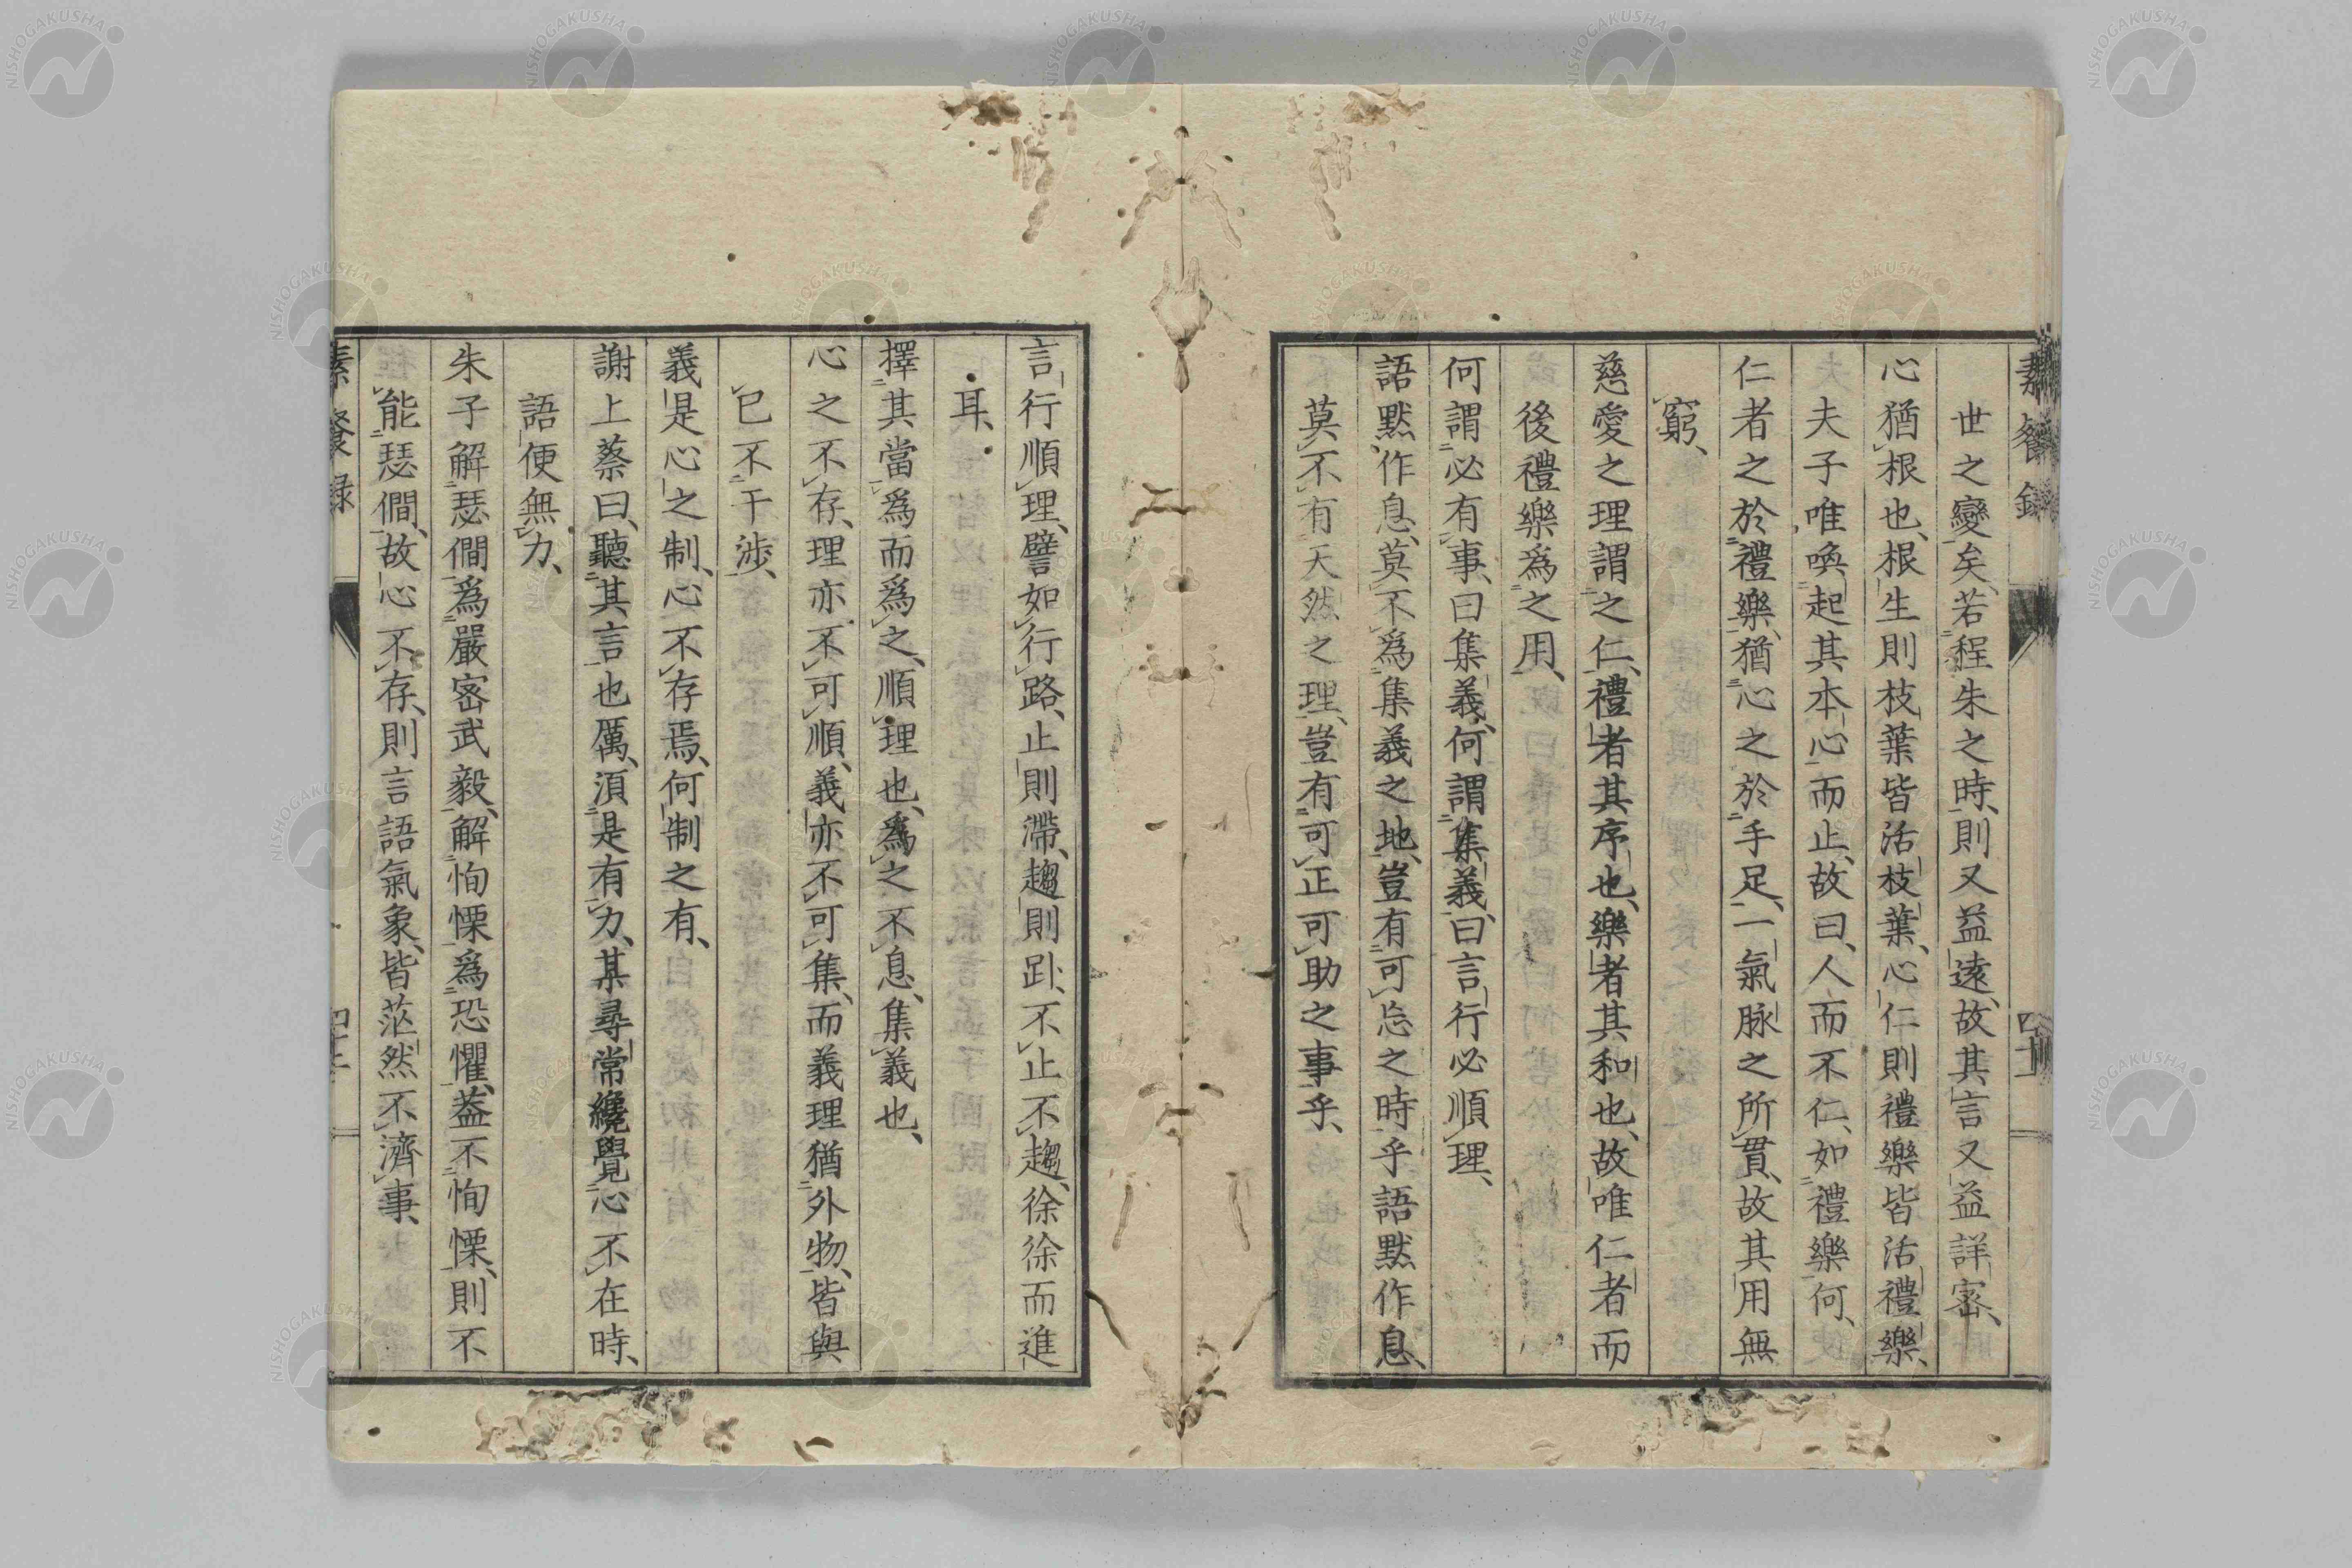 素餐錄
世之變矣、若程朱之時、則又益遠、故其言又益詳密、
心猶根也、根生則枝葉皆活枝葉、心仁則禮樂皆活禮樂、
夫子唯喚起其本心而止、故曰、人而不仁、如禮樂何、
仁者之於禮樂、猶心之於手足、一氣脉之所貫、故其用無
窮、
慈愛之理謂之仁、禮者其序也、樂者其和也、故唯仁者而
後禮樂爲之用、
何謂必有事、曰集義、何謂集義、曰言行必順理、
語默作息、莫不爲集義之地、豈有可忘之時乎語默作息、
莫不有天然之理、豈有可正可助之事乎、
言行順理、譬如行路、止則滯、趨則趴、不止不趨、徐徐而進
耳、
擇其當爲而爲之、順理也、爲之不息、集義也、
心之不存、理亦不可順、義亦不可集、而義理猶外物、皆與
已不干涉、
義是心之制、心不存焉、何制之有、
謝上蔡曰、聽其言也厲、須是有力、某尋常纔覺心不在時、
語便無力、
朱子解瑟僩爲嚴密武毅、解恂慄爲恐懼、益不恂慄、則不
能瑟僩、故心不存、則言語氣象、皆茫然不濟事、
素餐錄